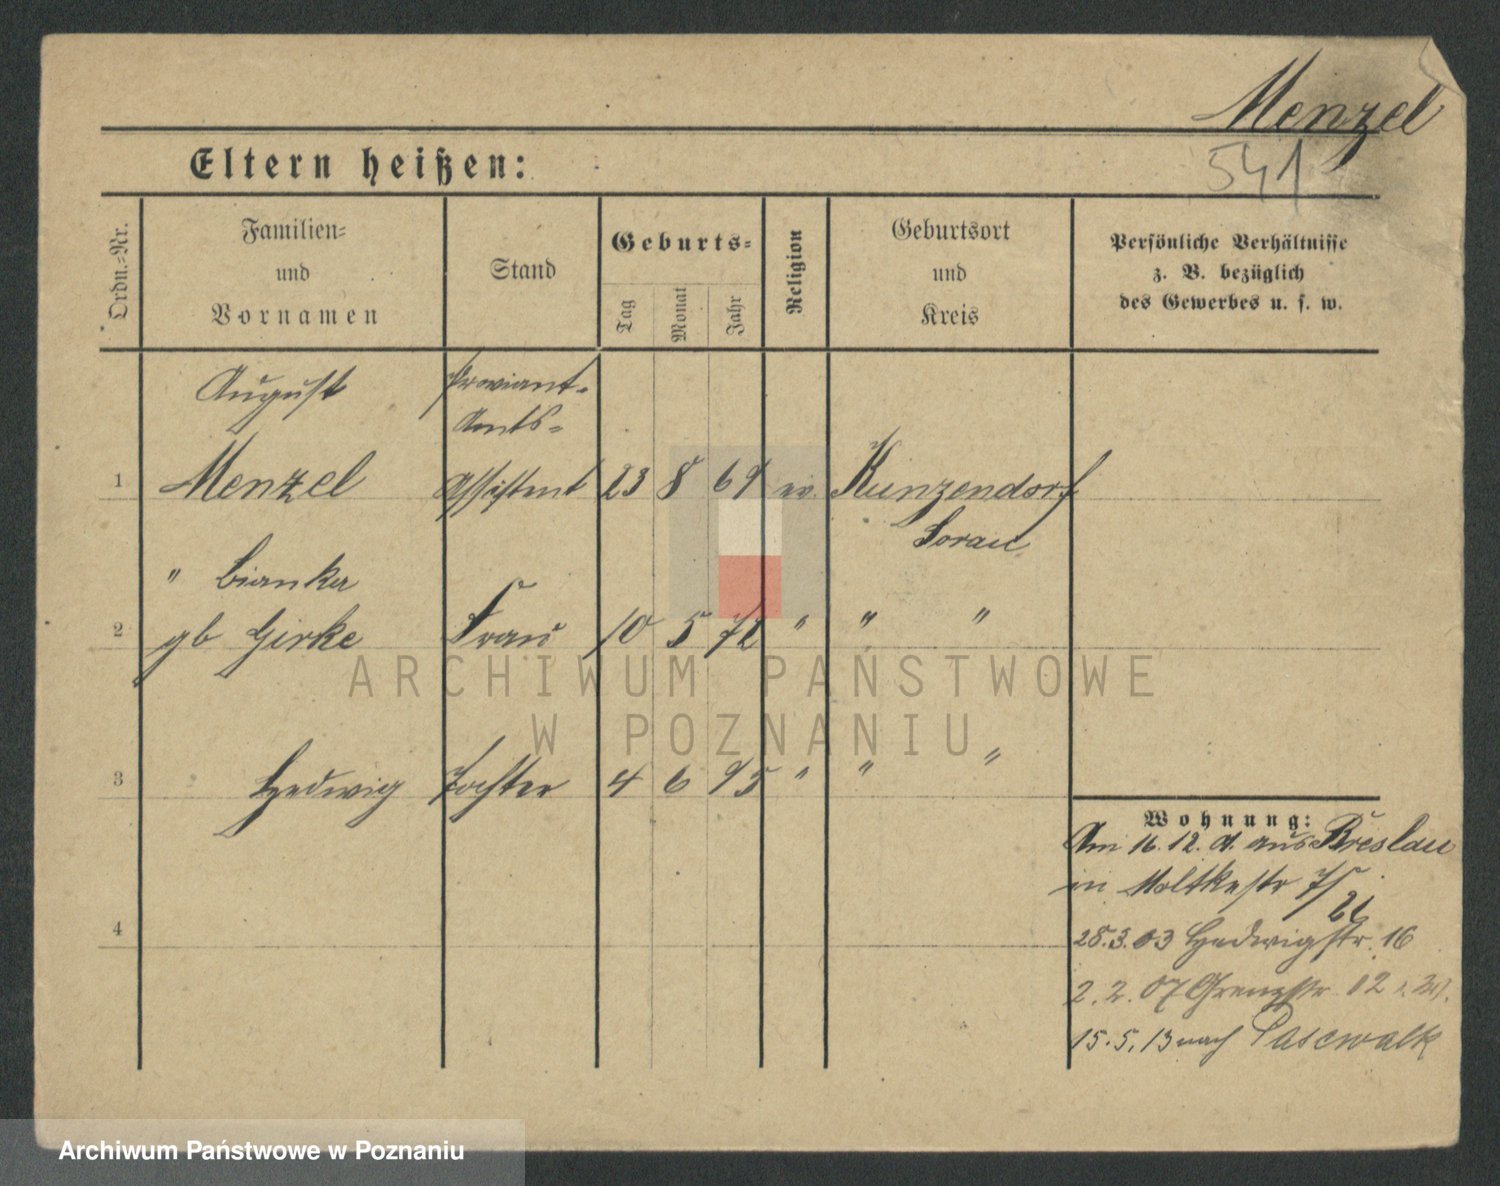 Menzel
541
Eltern heißen:
Ordn.-Nr.
Familien-
und
Vornamen
Stand
Geburts-
Tag
Monat
Jahr
Religion
Geburtsort
und
Kreis
Persönliche Verhältnisse
z. B. bezüglich
des Gewerbes u. s. w.
August
Proviant-
Amts-
1 Menzel Assistent 23 8 69 ev. Kunzendorf
Sorau
" Bianka
2 gb Girke Frau 10 5 72 " " "
3 Hedwig Tochter 4 6 95 " " "
4
Wohnung:
Am 16. 12. 01. aus Breslau
in Moltkestr
28.3.03 Hedwigstr. 16
2. 2. 07 Grenzstr. 12
15. 5. 13 nach Pasewalk
ARCHIWUM PAŃSTWOWE
W POZNANIU
Archiwum Państwowe w Poznaniu